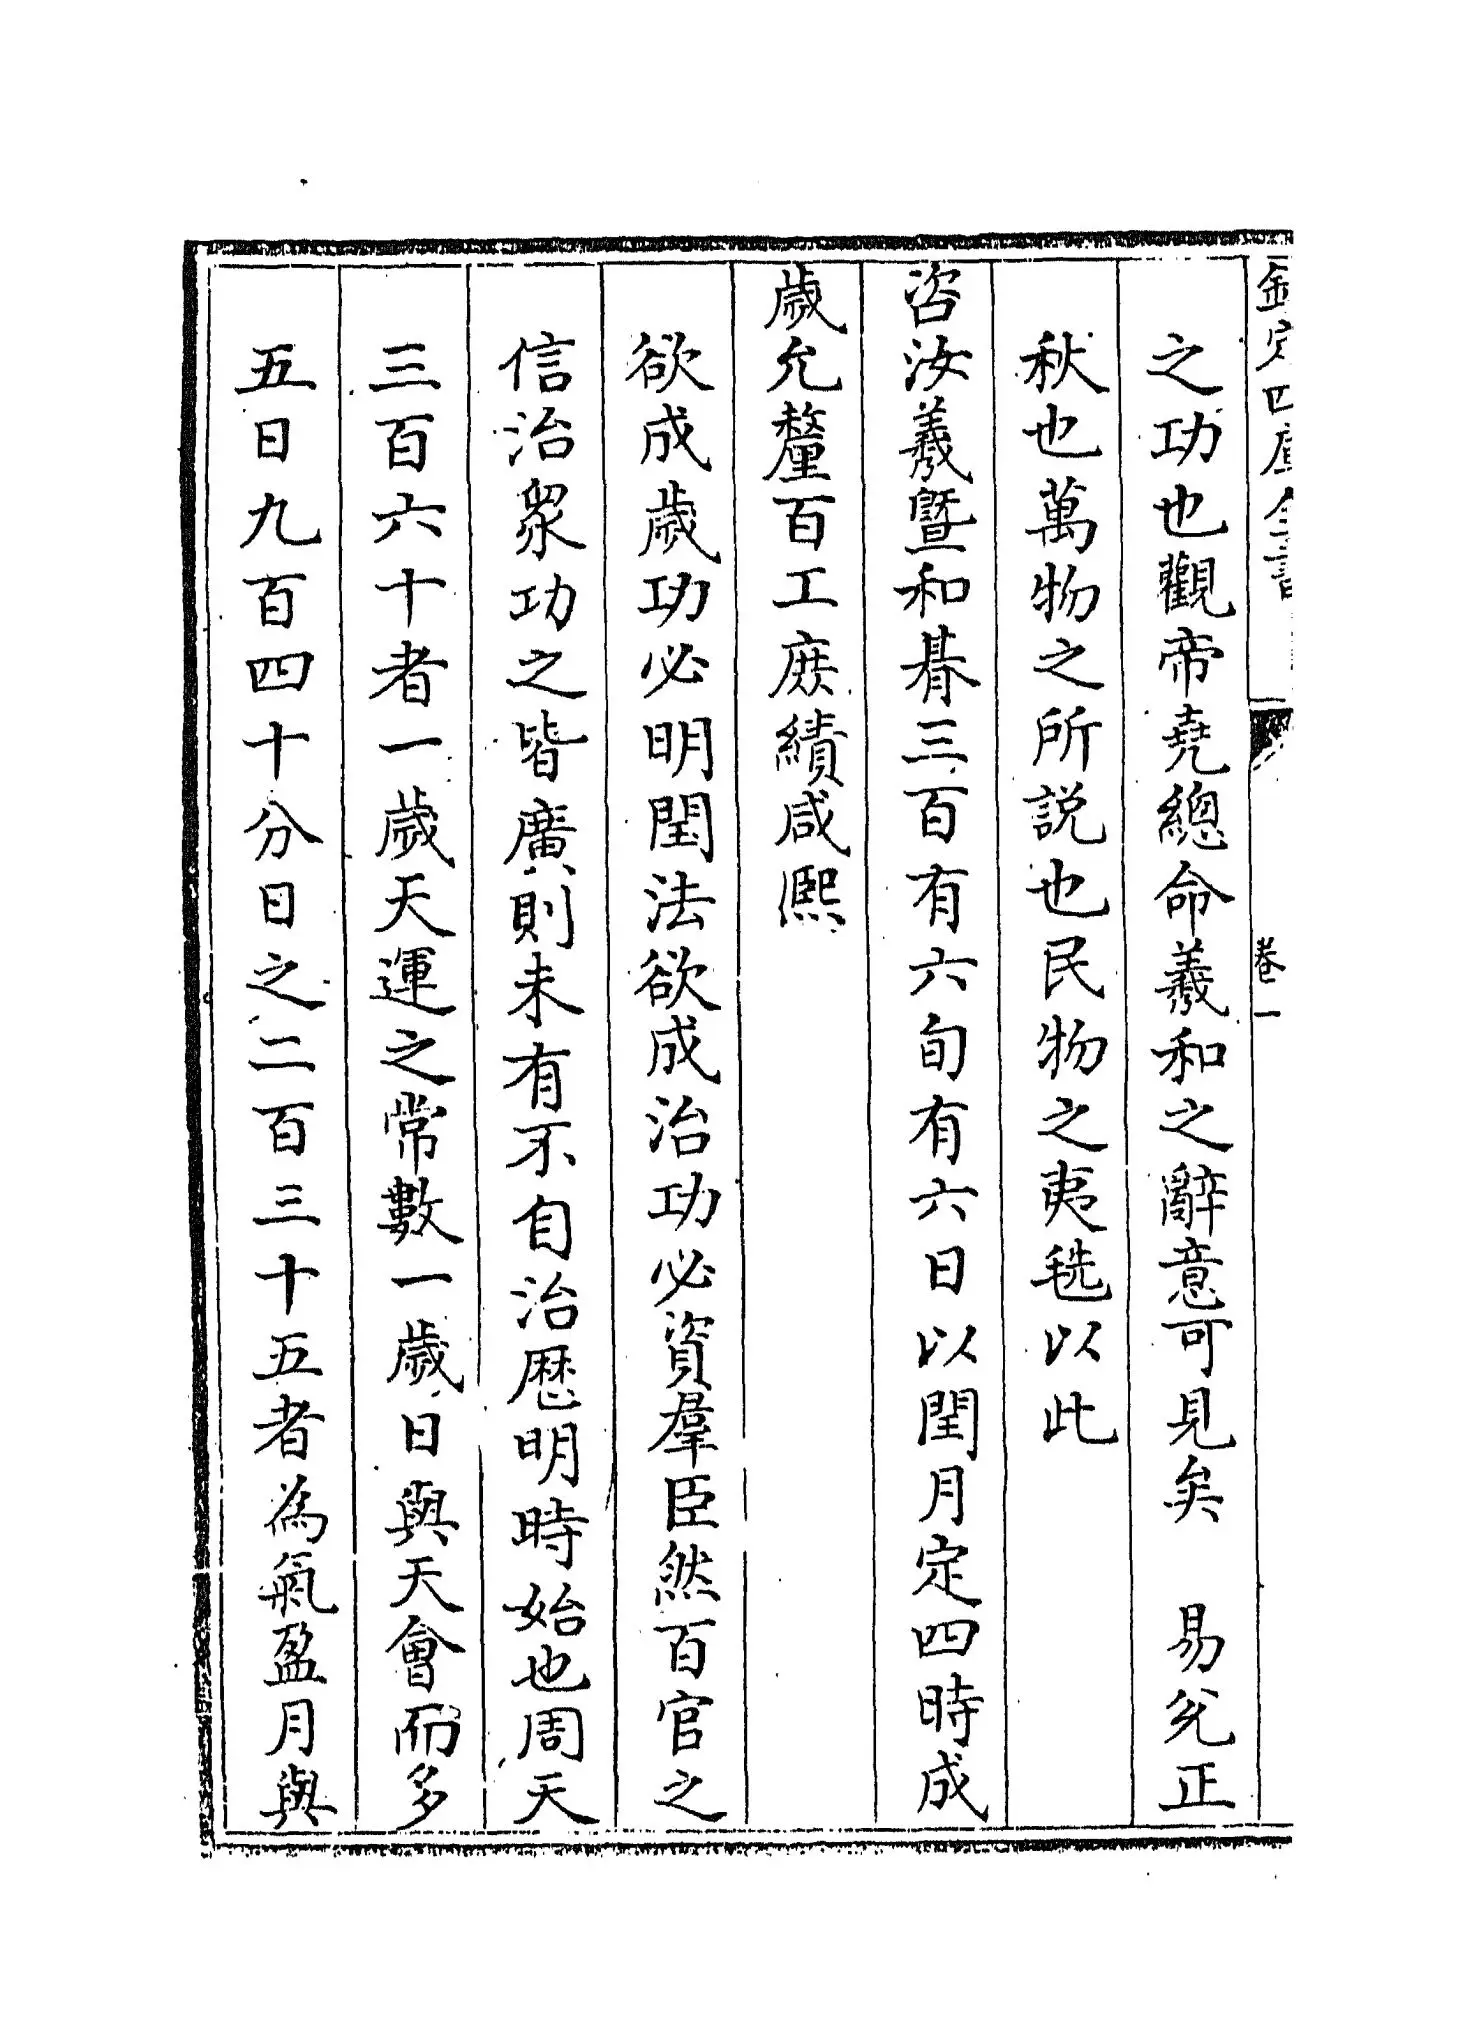 欽定四庫全書
卷一
之功也觀帝堯總命羲和之辭意可見矣　易兊正
秋也萬物之所説也民物之夷毨以此
咨汝羲暨和朞三百有六旬有六日以閏月定四時成
歲允釐百工庶績咸熙
欲成歲功必明閏法欲成治功必資羣臣然百官之
信治衆功之皆廣則未有不自治歴明時始也周天
三百六十者一歲天運之常數一歲日與天會而多
五日九百四十分日之二百三十五者為氣盈月與